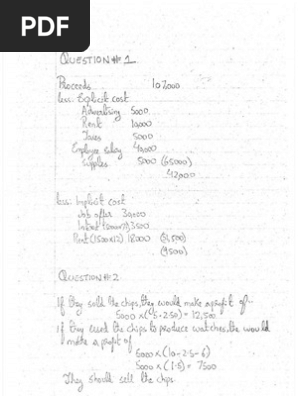 PDF
QUESTION # 1
Proceeds 107,000
less: Explicit cost
Advertising 5000
Rent 10,000
Taxes 5000
Employee salary 40,000
Supplies 5000 (65000)
42,000
less: Implicit cost
Job offer 30,000
Interest 3500
Rent (1500x12) 18000 (51,500)
(9500)
QUESTION # 2
If they sold the chips, they would make a profit of
5000 x (5-2.50) = 12,500
If they used the chips to produce watches, the would
make a profit of
5000 x (10-2.5-6)
5000 x (1.5) = 7500
They should sell the chips